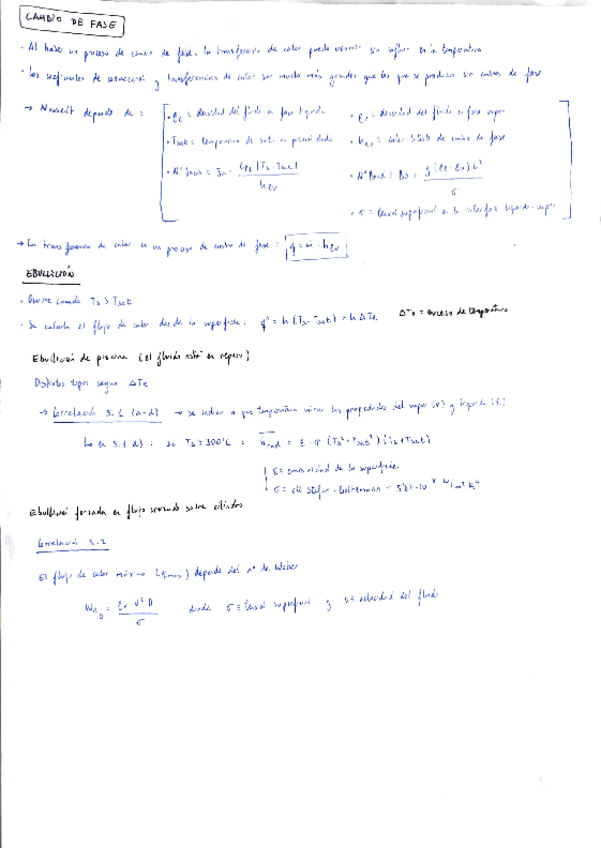 CAMBIO DE FASE
· Al haber un proceso de cambio de fase, la transferencia de calor puede ocurrir sin influir en la temperatura
· Los coeficientes de convección y transferencias de calor son mucho más grandes que los que se producen sin cambio de fase
→ Nusselt depende de:
· ρL = densidad del fluido en fase líquida
· ρv = densidad del fluido en fase vapor
· Tsat = temperatura de
· hLv = calor latente de cambio de fase
· Nº Jacob = Ja = cPL |Ts - Tsat| / hLv
· Nº Bond: Bo = g (ρL - ρv) L² / σ
· σ = tensión superficial en la interfase líquido-vapor
→ La transferencia de calor en un proceso de cambio de fase: q = ṁ · hLv
EBULLICIÓN
· Ocurre cuando Ts > Tsat
· Se calcula el flujo de calor desde la superficie: q" = h (Ts - Tsat) = h ΔTe ΔTe = exceso de temperatura
Ebullición de piscina (el fluido está en reposo)
Distintos tipos según ΔTe
→ Correlación 5.1 (a-d) → se indica a que temperatura mirar las propiedades del vapor (v) y líquido (L)
En 5.1 d): si Ts > 300°C : h̅rad = ε · σ (Ts² + Tsat²) (Ts + Tsat)
ε = emisividad de la superficie
σ = cte Stefan-Boltzmann = 5'67·10⁻⁸ W/m² K⁴
Ebullición forzada en flujo cruzado sobre cilindros
Correlación 5.2
El flujo de calor máximo (qmax) depende del nº de Weber
WeD = ρv v² D / σ donde σ = tensión superficial y v = velocidad del fluido